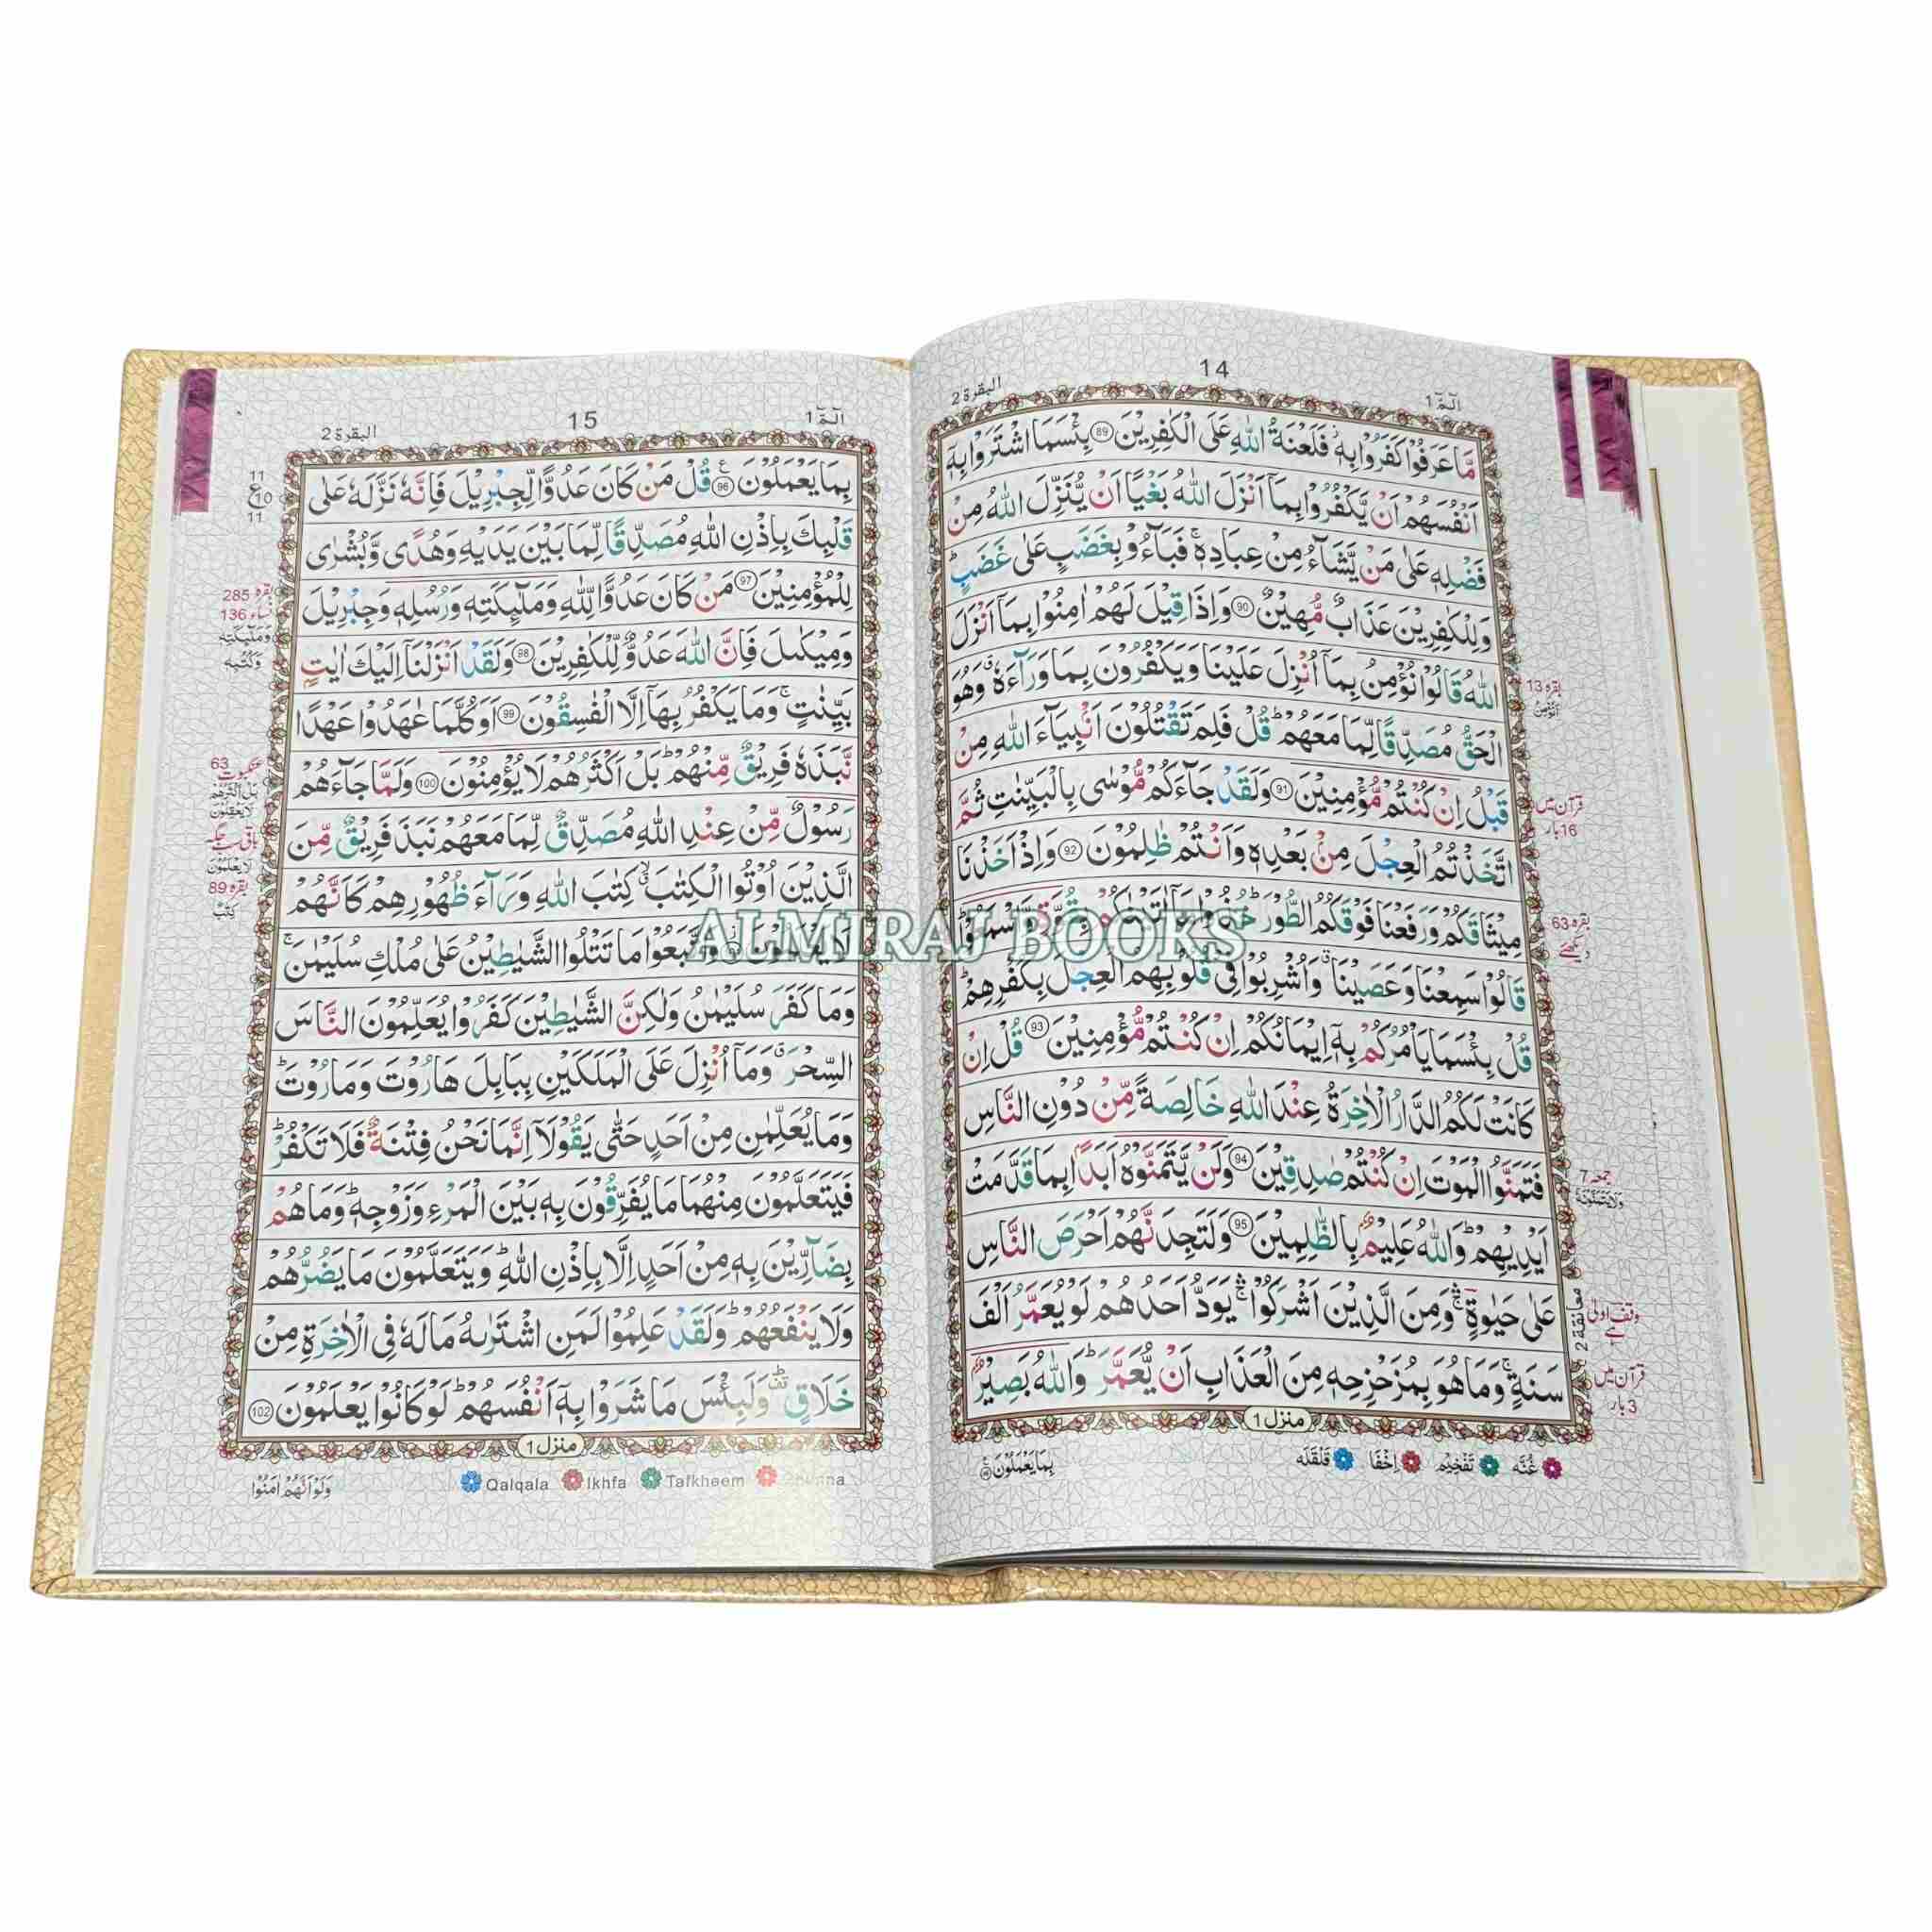 الٓمّٓ 1
14
البقرة 2
مَّا عَرَفُوْا كَفَرُوْا بِهٖ ۫ فَلَعْنَةُ اللّٰهِ عَلَى الْكٰفِرِيْنَ 89 بِئْسَمَا اشْتَرَوْا بِهٖٓ
اَنْفُسَهُمْ اَنْ يَّكْفُرُوْا بِمَآ اَنْزَلَ اللّٰهُ بَغْيًا اَنْ يُّنَزِّلَ اللّٰهُ مِنْ
فَضْلِهٖ عَلٰى مَنْ يَّشَآءُ مِنْ عِبَادِهٖ ۚ فَبَآءُوْ بِغَضَبٍ عَلٰى غَضَبٍ ؕ
وَلِلْكٰفِرِيْنَ عَذَابٌ مُّهِيْنٌ 90 وَاِذَا قِيْلَ لَهُمْ اٰمِنُوْا بِمَآ اَنْزَلَ
اللّٰهُ قَالُوْا نُؤْمِنُ بِمَآ اُنْزِلَ عَلَيْنَا وَيَكْفُرُوْنَ بِمَا وَرَآءَهٗ ۗ وَهُوَ
الْحَقُّ مُصَدِّقًا لِّمَا مَعَهُمْ ؕ قُلْ فَلِمَ تَقْتُلُوْنَ اَنْۢبِيَآءَ اللّٰهِ مِنْ
قَبْلُ اِنْ كُنْتُمْ مُّؤْمِنِيْنَ 91 وَلَقَدْ جَآءَكُمْ مُّوْسٰى بِالْبَيِّنٰتِ ثُمَّ
اتَّخَذْتُمُ الْعِجْلَ مِنْۢ بَعْدِهٖ وَاَنْتُمْ ظٰلِمُوْنَ 92 وَاِذْ اَخَذْنَا
مِيْثَاقَكُمْ وَرَفَعْنَا فَوْقَكُمُ الطُّوْرَ ؕ خُذُوْا مَآ اٰتَيْنٰكُمْ بِقُوَّةٍ وَّاسْمَعُوْا ؕ
قَالُوْا سَمِعْنَا وَعَصَيْنَا ۗ وَاُشْرِبُوْا فِيْ قُلُوْبِهِمُ الْعِجْلَ بِكُفْرِهِمْ ؕ
قُلْ بِئْسَمَا يَاْمُرُكُمْ بِهٖٓ اِيْمَانُكُمْ اِنْ كُنْتُمْ مُّؤْمِنِيْنَ 93 قُلْ اِنْ
كَانَتْ لَكُمُ الدَّارُ الْاٰخِرَةُ عِنْدَ اللّٰهِ خَالِصَةً مِّنْ دُوْنِ النَّاسِ
فَتَمَنَّوُا الْمَوْتَ اِنْ كُنْتُمْ صٰدِقِيْنَ 94 وَلَنْ يَّتَمَنَّوْهُ اَبَدًۢا بِمَا قَدَّمَتْ
اَيْدِيْهِمْ ؕ وَاللّٰهُ عَلِيْمٌۢ بِالظّٰلِمِيْنَ 95 وَلَتَجِدَنَّهُمْ اَحْرَصَ النَّاسِ
عَلٰى حَيٰوةٍ ۛۚ وَمِنَ الَّذِيْنَ اَشْرَكُوْا ۛۚ يَوَدُّ اَحَدُهُمْ لَوْ يُعَمَّرُ اَلْفَ
سَنَةٍ ۚ وَمَا هُوَ بِمُزَحْزِحِهٖ مِنَ الْعَذَابِ اَنْ يُّعَمَّرَ ؕ وَاللّٰهُ بَصِيْرٌۢ
منزل 1
غُنَّه تَفْخِيْم اِخْفَا قَلْقَلَه
بِمَا يَعْمَلُوْنَ
بقرہ 13
اَنُؤْمِنُ
قرآن میں
16 بار
بقرہ 63
دیکھئے
جمعہ 7
معانقة 2
وقف اولٰی ہے
قرآن میں
3 بار
الٓمّٓ 1
15
البقرة 2
بِمَا يَعْمَلُوْنَ 96 قُلْ مَنْ كَانَ عَدُوًّا لِّجِبْرِيْلَ فَاِنَّهٗ نَزَّلَهٗ عَلٰى
قَلْبِكَ بِاِذْنِ اللّٰهِ مُصَدِّقًا لِّمَا بَيْنَ يَدَيْهِ وَهُدًى وَّبُشْرٰى
لِلْمُؤْمِنِيْنَ 97 مَنْ كَانَ عَدُوًّا لِّلّٰهِ وَمَلٰٓئِكَتِهٖ وَرُسُلِهٖ وَجِبْرِيْلَ
وَمِيْكٰىلَ فَاِنَّ اللّٰهَ عَدُوٌّ لِّلْكٰفِرِيْنَ 98 وَلَقَدْ اَنْزَلْنَآ اِلَيْكَ اٰيٰتٍۢ
بَيِّنٰتٍ ۚ وَمَا يَكْفُرُ بِهَآ اِلَّا الْفٰسِقُوْنَ 99 اَوَكُلَّمَا عٰهَدُوْا عَهْدًا
نَّبَذَهٗ فَرِيْقٌ مِّنْهُمْ ؕ بَلْ اَكْثَرُهُمْ لَا يُؤْمِنُوْنَ 100 وَلَمَّا جَآءَهُمْ
رَسُوْلٌ مِّنْ عِنْدِ اللّٰهِ مُصَدِّقٌ لِّمَا مَعَهُمْ نَبَذَ فَرِيْقٌ مِّنَ
الَّذِيْنَ اُوْتُوا الْكِتٰبَ ۙ كِتٰبَ اللّٰهِ وَرَآءَ ظُهُوْرِهِمْ كَاَنَّهُمْ
لَا يَعْلَمُوْنَ وَاتَّبَعُوْا مَا تَتْلُوا الشَّيٰطِيْنُ عَلٰى مُلْكِ سُلَيْمٰنَ ۚ
وَمَا كَفَرَ سُلَيْمٰنُ وَلٰكِنَّ الشَّيٰطِيْنَ كَفَرُوْا يُعَلِّمُوْنَ النَّاسَ
السِّحْرَ ۗ وَمَآ اُنْزِلَ عَلَى الْمَلَكَيْنِ بِبَابِلَ هَارُوْتَ وَمَارُوْتَ ؕ
وَمَا يُعَلِّمٰنِ مِنْ اَحَدٍ حَتّٰى يَقُوْلَآ اِنَّمَا نَحْنُ فِتْنَةٌ فَلَا تَكْفُرْ ؕ
فَيَتَعَلَّمُوْنَ مِنْهُمَا مَا يُفَرِّقُوْنَ بِهٖ بَيْنَ الْمَرْءِ وَزَوْجِهٖ ؕ وَمَا هُمْ
بِضَآرِّيْنَ بِهٖ مِنْ اَحَدٍ اِلَّا بِاِذْنِ اللّٰهِ ؕ وَيَتَعَلَّمُوْنَ مَا يَضُرُّهُمْ
وَلَا يَنْفَعُهُمْ ؕ وَلَقَدْ عَلِمُوْا لَمَنِ اشْتَرٰىهُ مَا لَهٗ فِي الْاٰخِرَةِ مِنْ
خَلَاقٍ ۗ وَلَبِئْسَ مَا شَرَوْا بِهٖٓ اَنْفُسَهُمْ ؕ لَوْ كَانُوْا يَعْلَمُوْنَ 102
منزل 1
Qalqala Ikhfa Tafkheem
وَلَوْ اَنَّهُمْ اٰمَنُوْا
11
ع
10
11
بقرہ 285
نساء 136
وَمَلٰٓئِكَتِهٖ
وَكُتُبِهٖ
عنکبوت 63
بَلْ اَكْثَرُهُمْ
لَا يَعْقِلُوْنَ
باقی سب جگہ
لَا يَعْلَمُوْنَ
بقرہ 89
كِتٰبٌ
ALMIRAJ BOOKS